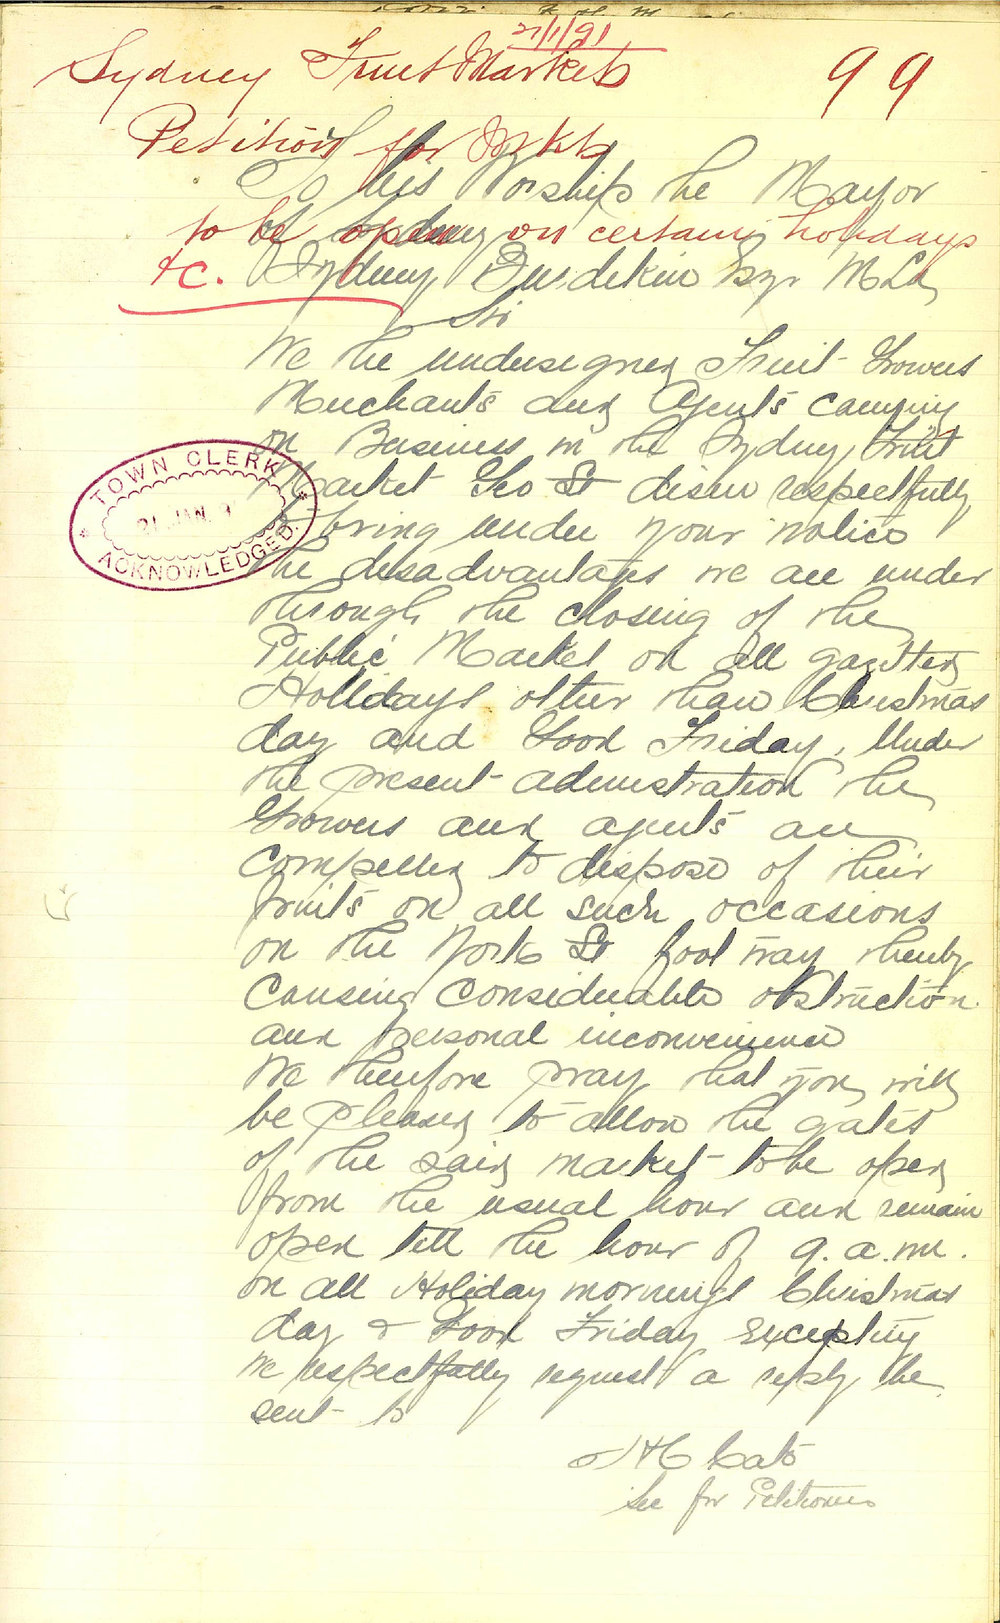 21/1/91
Sydney Fruit Markets
99
Petition for Mkts
to be open on certain holidays
&c.
To his Worship the Mayor
of Sydney
Sydney Burdekin Esqr MLA
Sir
We the undersigned Fruit Growers
Merchants and Agents carrying
on Business in the Sydney Fruit
Market Geo St desire respectfully
to bring under your notice
the disadvantages we are under
through the closing of the
Public Market on all gazetted
Hollidays other than Christmas
day and Good Friday. Under
the present adminstration the
Growers and agents are
compelled to dispose of their
fruits on all such occasions
on the York St foot way thereby
causing considerable obstruction
and personal inconvenience
We therefore pray that you will
be pleased to allow the gates
of the said market to be open
from the usual hour and remain
open till the hour of 9. a.m.
on all Holiday mornings Christmas
day & Good Friday excepting
We respectfully request a reply be
sent to
H C Cato
Sec for Petitioners
TOWN CLERK
21 JAN. 9
ACKNOWLEDGED.